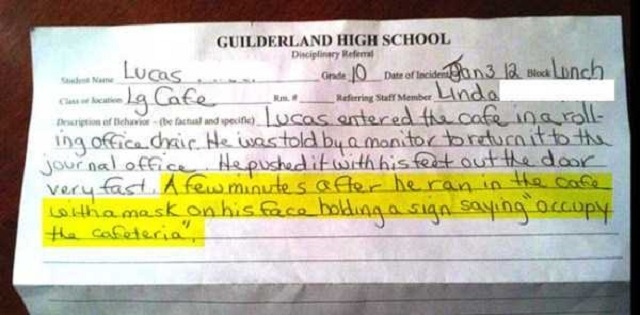 GUILDERLAND HIGH SCHOOL
Disciplinary Referral
Student Name Lucas Grade 10 Date of Incident Jan 3 12 Block Lunch
Class or location Lg Cafe Rm. # Referring Staff Member Linda
Description of Behavior - (be factual and specific) Lucas entered the cafe in a roll-
ing office chair. He was told by a monitor to return it to the
journal office. He pushed it with his feet out the door
very fast. A few minutes after he ran in the cafe
with a mask on his face holding a sign saying "occupy
the cafeteria".